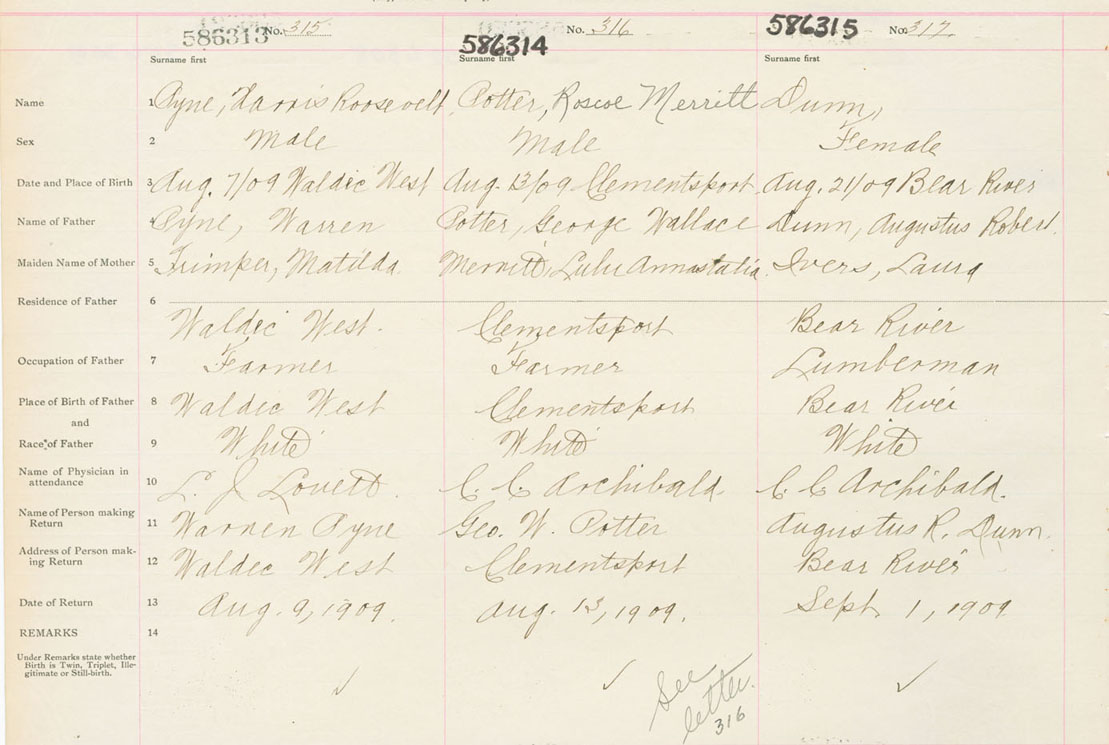 586313 No. 315 586314 No. 316 586315 No. 317
Surname first Surname first Surname first
Name 1 Pyne, Harris Roosevelt Potter, Roscoe Merritt Dunn,
Sex 2 Male Male Female
Date and Place of Birth 3 Aug. 7/09 Waldec West Aug. 13/09 Clementsport Aug. 21/09 Bear River
Name of Father 4 Pyne, Warren Potter, George Wallace Dunn, Augustus Robert.
Maiden Name of Mother 5 Trimper, Matilda. Merritt, Lulu Annastatia Ivers, Laura
Residence of Father 6
Waldec West. Clementsport Bear River
Occupation of Father 7 Farmer Farmer Lumberman
Place of Birth of Father 8 Waldec West Clementsport Bear River
and
Race of Father 9 White White White
Name of Physician in
attendance 10 L. J Lovett. C. C Archibald. C. C Archibald.
Name of Person making
Return 11 Warren Pyne Geo. W. Potter Augustus R. Dunn.
Address of Person mak-
ing Return 12 Waldec West Clementsport Bear River
Date of Return 13 Aug. 9, 1909. Aug. 13, 1909. Sept 1, 1909
REMARKS 14
Under Remarks state whether
Birth is Twin, Triplet, Ille-
gitimate or Still-birth.
✓ ✓ ✓
See
letter.
316